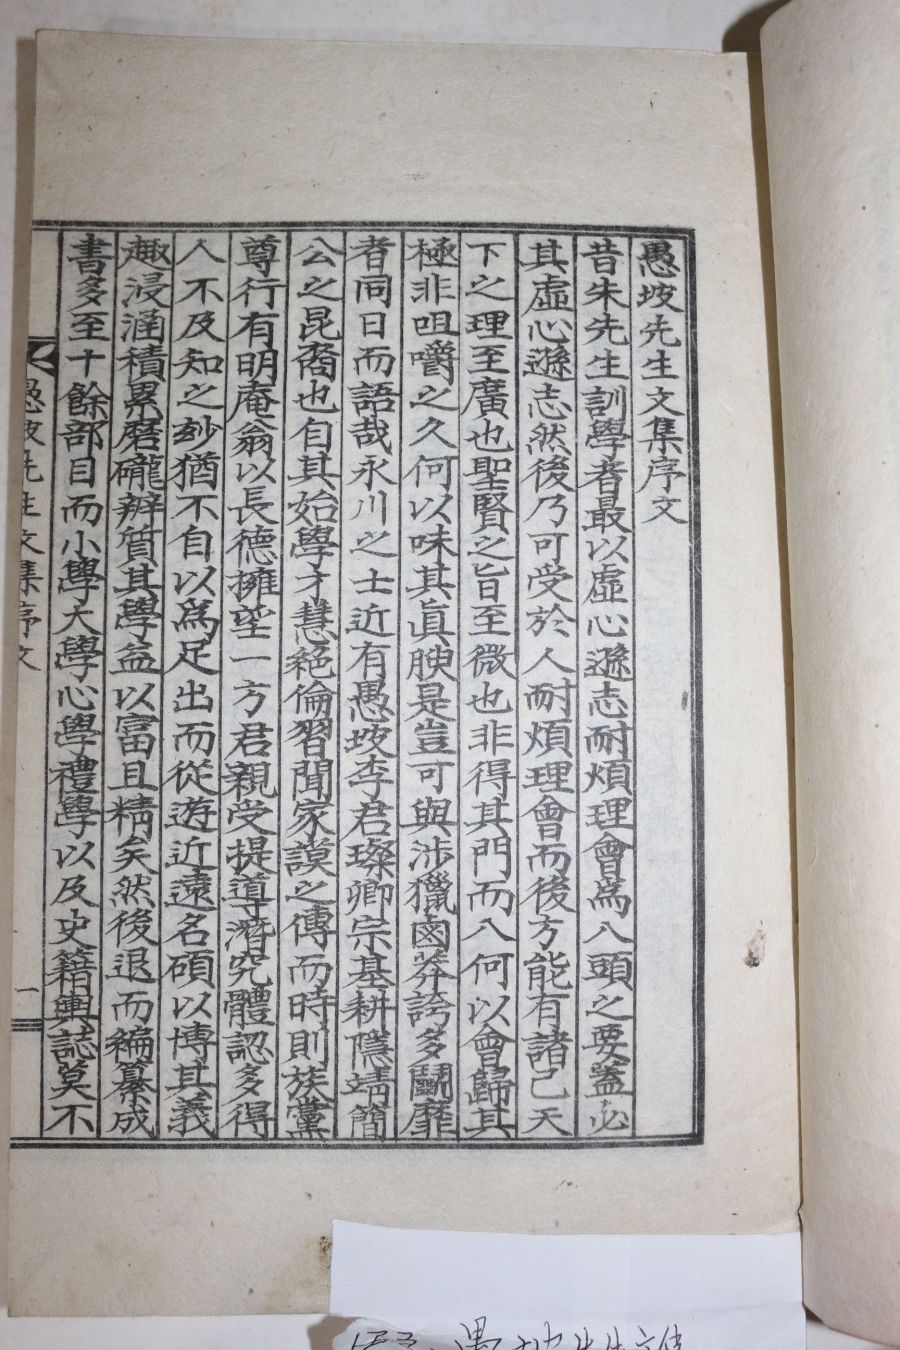 愚坡先生文集序文
昔朱先生訓學者最以虛心遜志耐煩理會爲八頭之要蓋必
其虛心遜志然後乃可受於人耐煩理會而後方能有諸己天
下之理至廣也聖賢之旨至微也非得其門而八何以會歸其
極非咀嚼之久何以味其眞腴是豈可與涉獵鹵莽誇多鬭靡
者同日而語哉永川之士近有愚坡李君璨卿宗基耕隱靖簡
公之昆裔也自其始學才慧絕倫習聞家謨之傳而時則族黨
尊行有明庵翁以長德擁望一方君親受提導潛究體認多得
人不及知之玅猶不自以爲足出而從遊近遠名碩以博其義
趣浸涵積累磨礲辨質其學益以富且精矣然後退而編纂成
書多至十餘部目而小學大學心學禮學以及史籍輿誌莫不
愚坡先生文集序文
一
愚坡先生文集